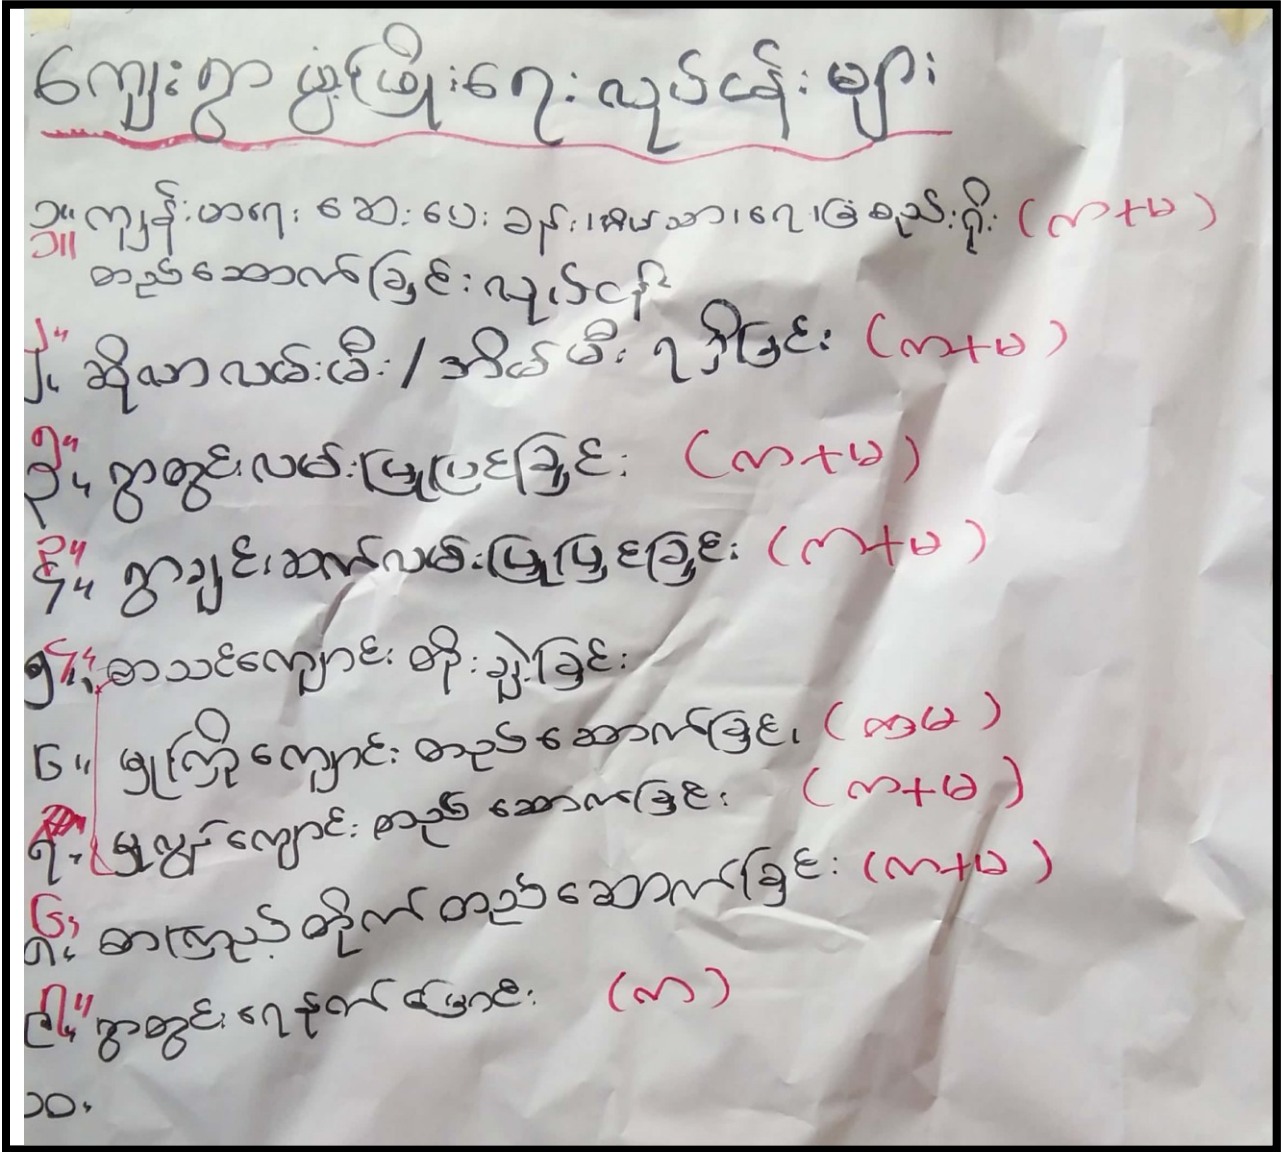 ကျေးရွာ ဖွံ့ဖြိုးရေး လုပ်ငန်းများ
၁။ ကျန်းမာရေး ဆေးပေးခန်း၊ အိမ်သာ၊ ရေ၊ ခြံစည်းရိုး (က+မ)
၁။ တည်ဆောက်ခြင်း လုပ်ငန်း
၂။ ဆိုလာလမ်းမီး / အိမ်မီး ရရှိခြင်း (က+မ)
၃။ ရွာတွင်းလမ်းပြုပြင်ခြင်း (က+မ)
၄။ ရွာချင်းဆက်လမ်းပြုပြင်ခြင်း (က+မ)
၅။ စာသင်ကျောင်း တိုးချဲ့ခြင်း
၆။ မူကြိုကျောင်း တည်ဆောက်ခြင်း (ကမ)
၇။ မူလွန်ကျောင်း တည်ဆောက်ခြင်း (က+မ)
စာကြည့်တိုက် တည်ဆောက်ခြင်း (က+မ)
ရွာတွင်း ရေနုတ်မြောင်း (က)
၁၀။